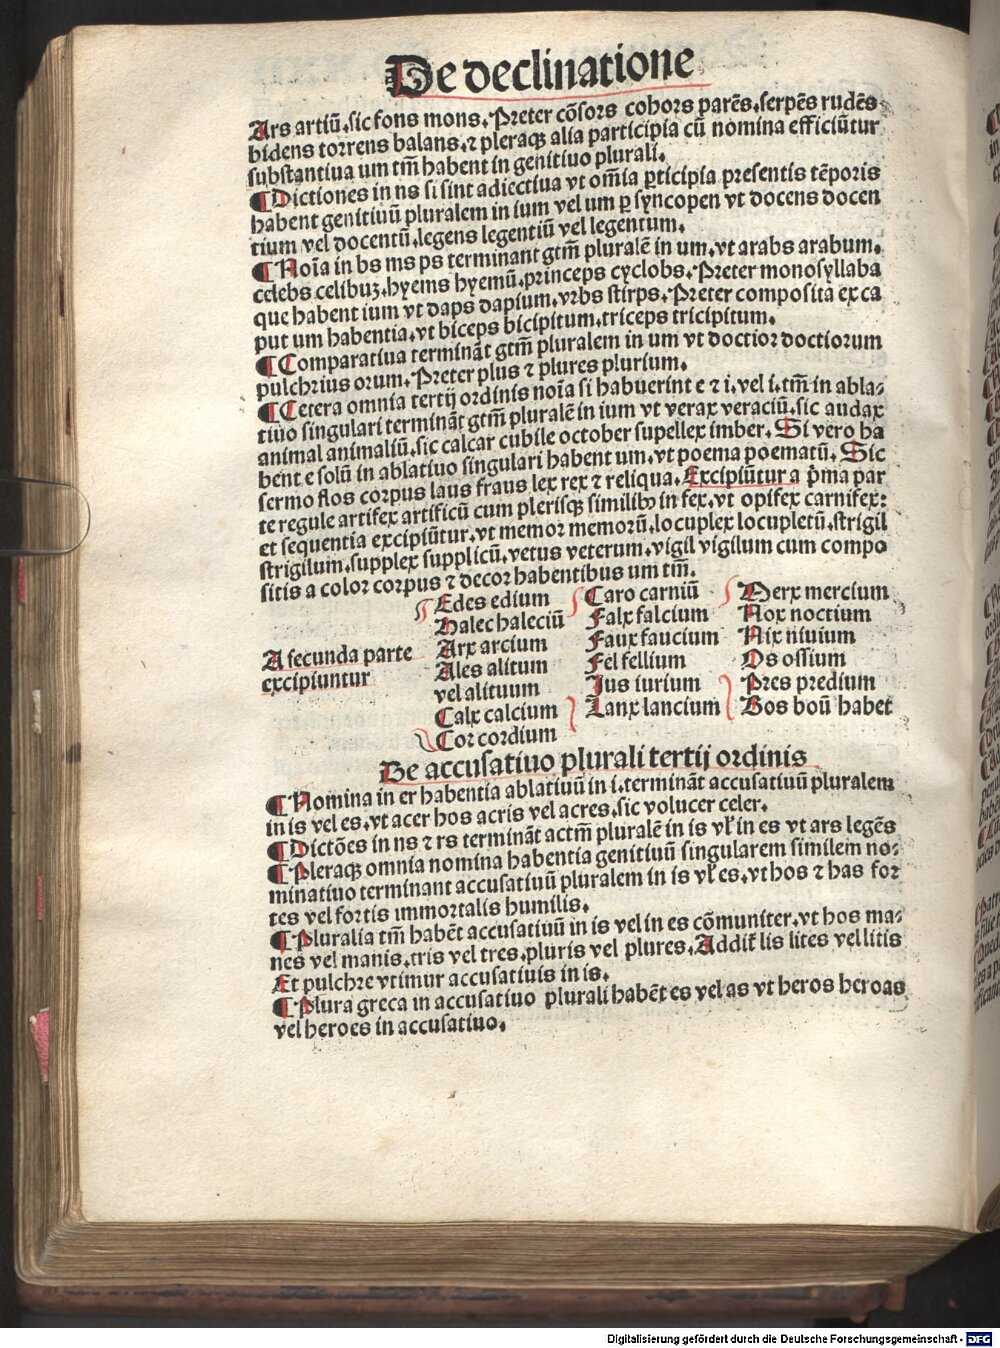 De declinatione
Ars artiū.sic fons mons.Preter cōsors cohors parēs.serpēs rudēs
bidens torrens balans.⁊ pleraqꝫ alia participia cū nomina efficiūtur
substantiua um tm̄ habent in genitiuo plurali.
¶Dictiones in ns si sint adiectiua vt om̄ia ꝑticipia presentis tēporis
habent genitiuū pluralem in ium vel um ꝑ syncopen vt docens docen
tium vel docentū.legens legentiū vel legentum.
¶Noīa in bs ms ps terminant gtm̄ pluralē in um.vt arabs arabum.
celebs celibuꝫ.hyems hyemū.princeps cyclobs.Preter monosyllaba
que habent ium vt daps dapium.vrbs stirps.Preter composita ex ca
put um habentia.vt biceps bicipitum.triceps tricipitum.
¶Comparatiua termināt gtm̄ pluralem in um vt doctior doctiorum
pulchrius orum.Preter plus ⁊ plures plurium.
¶Cetera omnia tertij ordinis noīa si habuerint e ⁊ i.vel i.tm̄ in abla⸗
tiuo singulari termināt gtm̄ pluralē in ium vt verax veraciū.sic audax
animal animaliū.sic calcar cubile october supellex imber.Si vero ha
bent e solū in ablatiuo singulari habent um.vt poema poematū.Sic
sermo flos corpus laus fraus lex rex ⁊ reliqua.Excipiūtur a p̄ma par
te regule artifex artificū cum plerisqꝫ similibꝰ in fex.vt opifex carnifex:
et sequentia excipiūtur.vt memor memorū.locuplex locupletū.strigil
strigilum.supplex supplicū.vetus veterum.vigil vigilum cum compo
sitis a color corpus ⁊ decor habentibus um tm̄.
A secunda parte
excipiuntur
Edes edium
Halec haleciū
Arx arcium
Ales alitum
vel alituum
Calx calcium
Cor cordium
Caro carniū
Falx falcium
Faux faucium
Fel fellium
Jus iurium
Lanx lancium
Merx mercium
Nox noctium
Nix niuium
Os ossium
Pres predium
Bos boū habet
De accusatiuo plurali tertij ordinis
¶Nomina in er habentia ablatiuū in i.termināt accusatiuū pluralem
in is vel es.vt acer hos acris vel acres.sic volucer celer.
¶Dictōes in ns ⁊ rs termināt actm̄ pluralē in is vl̓ in es vt ars legēs
¶Pleraqꝫ omnia nomina habentia genitiuū singularem similem no⸗
minatiuo terminant accusatiuū pluralem in is vl̓ es.vt hos ⁊ has for
tes vel fortis immortalis humilis.
¶Pluralia tm̄ habēt accusatiuū in is vel in es cōmuniter.vt hos ma⸗
nes vel manis.tris vel tres.pluris vel plures.Addit̄ lis lites vel litis
Et pulchre vtimur accusatiuis in is.
¶Plura greca in accusatiuo plurali habēt es vel as vt heros heroas
vel heroes in accusatiuo.
Digitalisierung gefördert durch die Deutsche Forschungsgemeinschaft - DFG